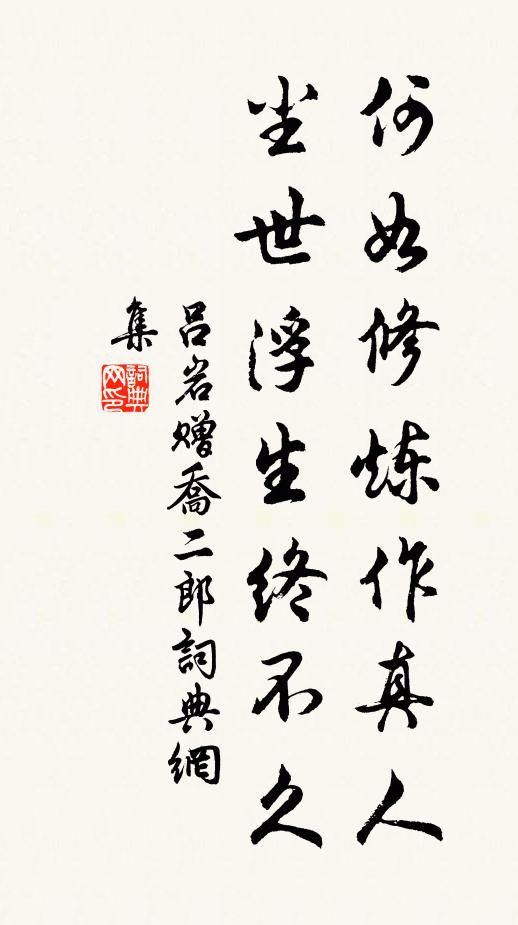 何如修炼作真人
尘世浮生终不久
吕岩赠喬二郎詞典網
集
詞典網印